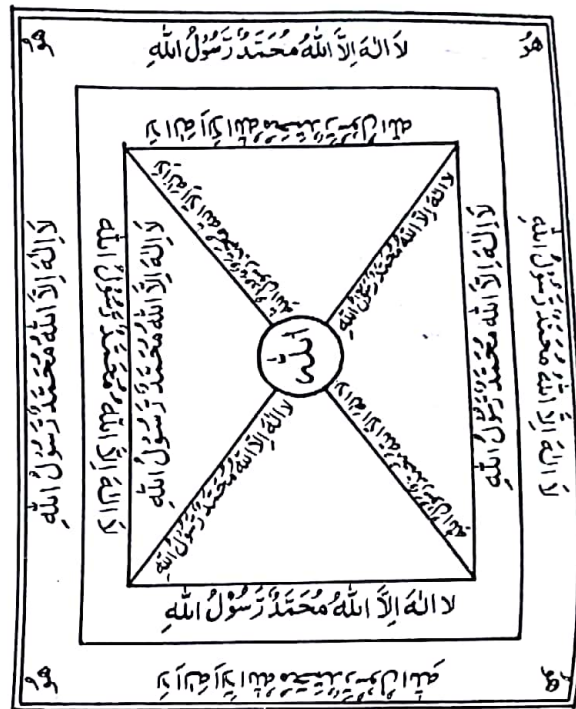 هو هو
لَا اِلٰهَ اِلَّا اللهُ مُحَمَّدٌ رَّسُوْلُ اللهِ
لَا اِلٰهَ اِلَّا اللهُ مُحَمَّدٌ رَّسُوْلُ اللهِ
لَا اِلٰهَ اِلَّا اللهُ مُحَمَّدٌ رَّسُوْلُ اللهِ
لَا اِلٰهَ اِلَّا اللهُ مُحَمَّدٌ رَّسُوْلُ اللهِ
لَا اِلٰهَ اِلَّا اللهُ مُحَمَّدٌ رَّسُوْلُ اللهِ
لَا اِلٰهَ اِلَّا اللهُ مُحَمَّدٌ رَّسُوْلُ اللهِ
لَا اِلٰهَ اِلَّا اللهُ مُحَمَّدٌ رَّسُوْلُ اللهِ
لَا اِلٰهَ اِلَّا اللهُ مُحَمَّدٌ رَّسُوْلُ اللهِ
لَا اِلٰهَ اِلَّا اللهُ مُحَمَّدٌ رَّسُوْلُ اللهِ
الله
لَا اِلٰهَ اِلَّا اللهُ مُحَمَّدٌ رَّسُوْلُ اللهِ
لَا اِلٰهَ اِلَّا اللهُ مُحَمَّدٌ رَّسُوْلُ اللهِ
لَا اِلٰهَ اِلَّا اللهُ مُحَمَّدٌ رَّسُوْلُ اللهِ
لَا اِلٰهَ اِلَّا اللهُ مُحَمَّدٌ رَّسُوْلُ اللهِ
هو هو